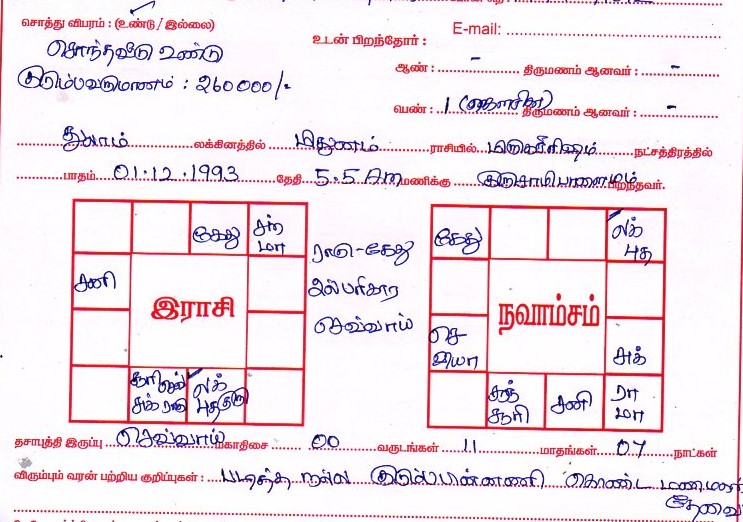 சொத்து விபரம் : (உண்டு / இல்லை)
சொந்தவீடு உண்டு
குடும்பவருமானம் : 260000/-
உடன் பிறந்தோர் :
E-mail:
ஆண் : - திருமணம் ஆனவர் : -
பெண் : 1 திருமணம் ஆனவர் : -
துலாம் லக்கினத்தில் மிதுனம் ராசியில் மிருகசீரிஷம் நட்சத்திரத்தில்
பாதம் 01.12.1993 தேதி 5.5 Am மணிக்கு பிறந்தவர்.
கேது சந் மா
சனி
இராசி
சூரி செவ் சுக் ராகு
லக் புத குரு
ராகு-கேது
செவ்வாய்
கேது லக் புத
நவாம்சம்
செ வியா
சுக்
சந் சூரி சனி ரா மா
தசாபுத்தி இருப்பு செவ்வாய் மகாதிசை 00 வருடங்கள் 11 மாதங்கள் 07 நாட்கள்
விரும்பும் வரன் பற்றிய குறிப்புகள் : படித்த நல்ல கொண்ட மணமகன்
தேவை